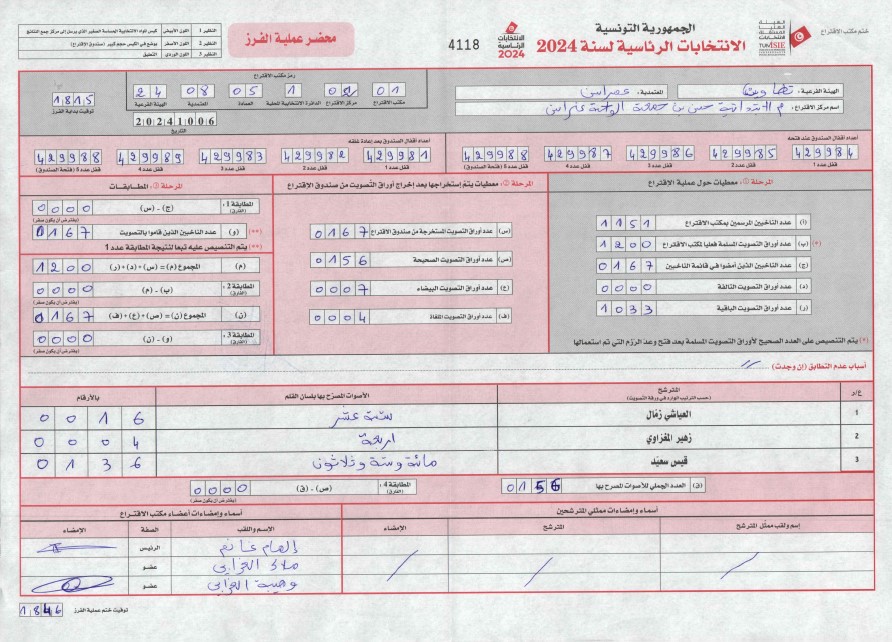 النظير 1 اللون الأبيض
النظير 2 اللون الأصفر
النظير 3 اللون الوردي التعليق
محضر عملية الفرز
4118
الانتخابات الرئاسية 2024
الجمهورية التونسية
الانتخابات الرئاسية لسنة 2024
الهيئة العليا المستقلة للانتخابات
ختم مكتب الاقتراع
الهيئة الفرعية:
المعتمدية:
اسم مركز الاقتراع:
رمز مكتب الاقتراع
01 02 1 05 08 24
مكتب الاقتراع مركز الاقتراع الدائرة الانتخابية المحلية العمادة المعتمدية الهيئة الفرعية
1815
توقيت بداية الفرز
20241006
التاريخ
أعداد أقفال الصندوق عند فتحه
429984 429985 429986 429987 429988
قفل عدد 1 قفل عدد 2 قفل عدد 3 قفل عدد 4 قفل عدد 5 (فتحة الصندوق)
أعداد أقفال الصندوق بعد إعادة غلقه
429981 429982 429983 429989 429988
قفل عدد 1 قفل عدد 2 قفل عدد 3 قفل عدد 4 قفل عدد 5 (فتحة الصندوق)
المرحلة 1: معطيات حول عملية الاقتراع
(أ) عدد الناخبين المرسمين بمكتب الاقتراع 1151
(*) (ب) عدد أوراق التصويت المسلمة فعليا لمكتب الاقتراع 1200
(ج) عدد الناخبين الذين أمضوا في قائمة الناخبين 0167
(د) عدد أوراق التصويت التالفة 0000
(ر) عدد أوراق التصويت الباقية 1033
(*) يتم التنصيص على العدد الصحيح لأوراق التصويت المسلمة بعد فتح وعد الرزم التي تم استعمالها
المرحلة 2: معطيات يتم إستخراجها بعد إخراج أوراق التصويت من صندوق الاقتراع
(س) عدد أوراق التصويت المستخرجة من صندوق الاقتراع 0167
(ص) عدد أوراق التصويت الصحيحة 0156
(ع) عدد أوراق التصويت البيضاء 0007
(ف) عدد أوراق التصويت الملغاة 0004
المرحلة 3: المطابقات
المطابقة 1: (الفارق) (ج) - (س) 0000
(يفترض أن يكون صفر)
(و) عدد الناخبين الذين قاموا بالتصويت 0167 (**)
(**) يتم التنصيص عليه تبعا لنتيجة المطابقة عدد 1
(م) المجموع (م) = (س) + (د) + (ر) 1200
المطابقة 2: (الفارق) (ب) - (م) 0000
(يفترض أن يكون صفر)
(ن) المجموع (ن) = (ص) + (ع) + (ف) 0167
المطابقة 3: (الفارق) (و) - (ن) 0000
(يفترض أن يكون صفر)
أسباب عدم التطابق (إن وجدت) //
ع/ر المترشح الأصوات المصرّح بها بلسان القلم بالأرقام
(حسب الترتيب الوارد في ورقة التصويت)
1 العياشي زمّال ستة عشر 0016
2 زهير المغزاوي اربعة 0004
3 قيس سعيّد مائة وستة وثلاثون 0136
(ق) العدد الجملي للأصوات المصرح بها 0156
المطابقة 4: (الفارق) (ص) - (ق) 0000
(يفترض أن يكون صفر)
أسماء وإمضاءات ممثلي المترشحين
إسم ولقب ممثّل المترشح المترشح الإمضاء
أسماء وإمضاءات أعضاء مكتب الاقتراع
الإسم واللقب الصفة الإمضاء
الهام غانم الرئيس
ملاك العرابي عضو
وهيبة العرابي عضو
توقيت ختم عملية الفرز 1846